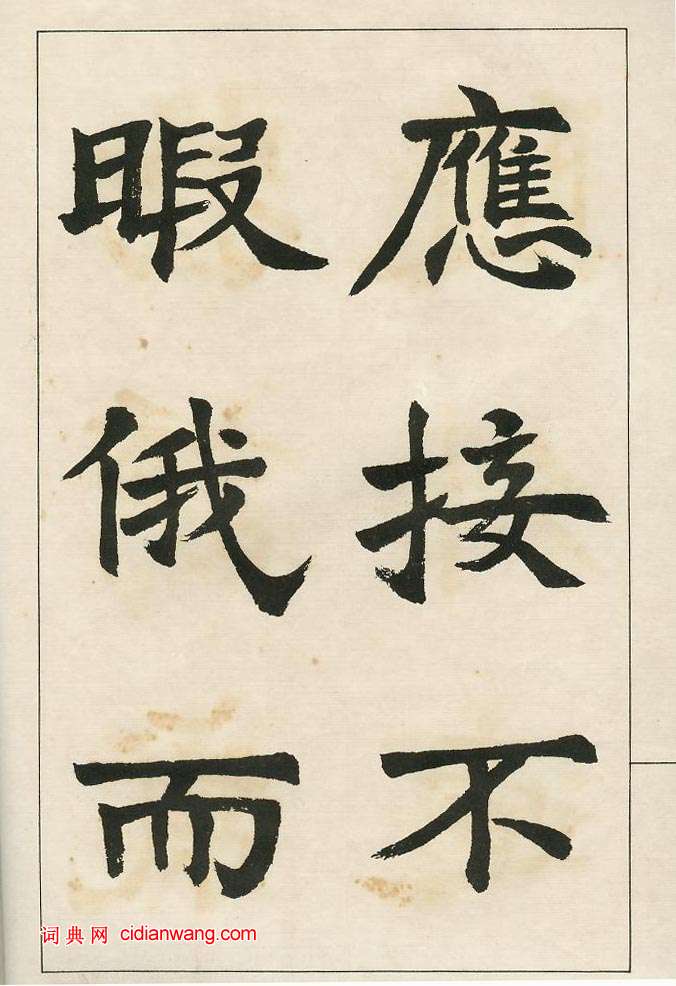 應接不
暇俄而
词典网 cidianwang.com